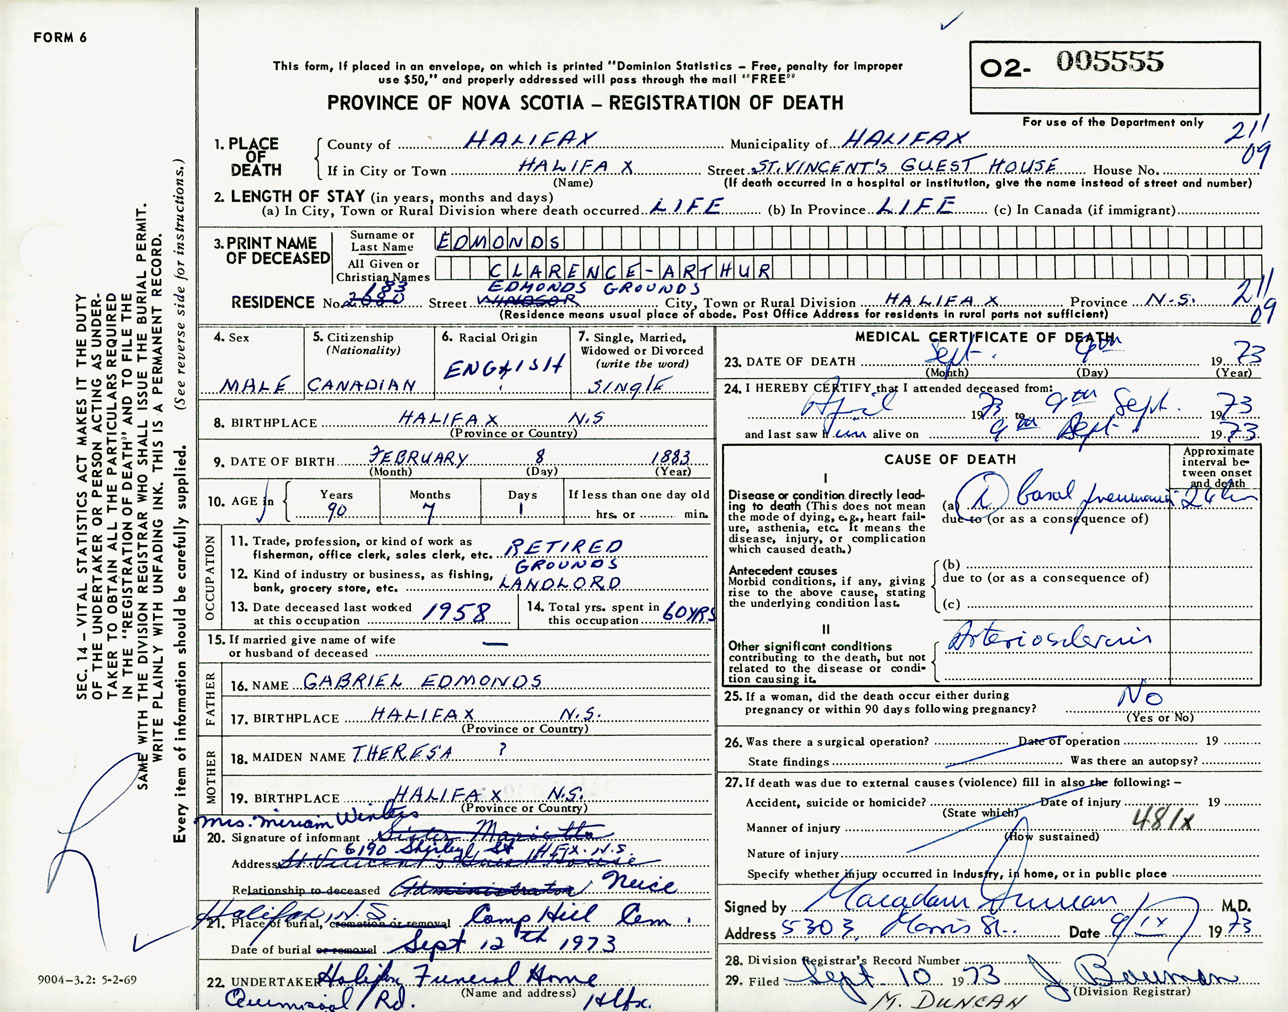 FORM 6
This form, if placed in an envelope, on which is printed "Dominion Statistics – Free, penalty for improper
use $50," and properly addressed will pass through the mail "FREE"
PROVINCE OF NOVA SCOTIA – REGISTRATION OF DEATH
O2- 005555
For use of the Department only
211
09
1. PLACE OF DEATH
County of HALIFAX Municipality of HALIFAX
If in City or Town HALIFAX Street ST. VINCENT'S GUEST HOUSE House No.
(Name) (If death occurred in a hospital or institution, give the name instead of street and number)
2. LENGTH OF STAY (in years, months and days)
(a) In City, Town or Rural Division where death occurred LIFE (b) In Province LIFE (c) In Canada (if immigrant)
3. PRINT NAME OF DECEASED
Surname or Last Name EDMONDS
All Given or Christian Names CLARENCE-ARTHUR
183 EDMONDS GROUNDS
RESIDENCE No. 2080 Street WINDSOR City, Town or Rural Division HALIFAX Province N.S.
211
09
(Residence means usual place of abode. Post Office Address for residents in rural parts not sufficient)
4. Sex MALE
5. Citizenship (Nationality) CANADIAN
6. Racial Origin ENGLISH
7. Single, Married, Widowed or Divorced (write the word) SINGLE
8. BIRTHPLACE HALIFAX N.S
(Province or Country)
9. DATE OF BIRTH FEBRUARY 8 1883
(Month) (Day) (Year)
10. AGE in Years 90 Months 7 Days 1 If less than one day old hrs. or min.
OCCUPATION
11. Trade, profession, or kind of work as
fisherman, office clerk, sales clerk, etc. RETIRED
GROUNDS
12. Kind of industry or business, as fishing,
bank, grocery store, etc. LANDLORD
13. Date deceased last worked
at this occupation 1958
14. Total yrs. spent in
this occupation 60 YRS
15. If married give name of wife
or husband of deceased —
FATHER
16. NAME GABRIEL EDMONDS
17. BIRTHPLACE HALIFAX N.S.
(Province or Country)
MOTHER
18. MAIDEN NAME THERESA ?
19. BIRTHPLACE HALIFAX N.S.
(Province or Country)
Mrs. Miriam Winters
20. Signature of informant Sister Marietta
6190 Shirley St Hfx. N.S.
Address St Vincent's Guest House
Relationship to deceased Administrator Neice
Halifax, N.S
21. Place of burial, cremation or removal Camp Hill Cem.
Date of burial or removal Sept 12th 1973
22. UNDERTAKER Halifax Funeral Home
(Name and address)
Rd. Hlfx.
MEDICAL CERTIFICATE OF DEATH
23. DATE OF DEATH Sept. 9th 1973
(Month) (Day) (Year)
24. I HEREBY CERTIFY that I attended deceased from:
April 1973 to 9th Sept. 1973
and last saw him alive on 9th Sept 1973
CAUSE OF DEATH
Approximate interval between onset and death
I
Disease or condition directly leading to death (This does not
mean the mode of dying, e.g., heart failure, asthenia, etc. It means the
disease, injury, or complication
which caused death.)
(a) basal pneumonia 24 hrs
due to (or as a consequence of)
Antecedent causes
Morbid conditions, if any, giving
rise to the above cause, stating
the underlying condition last.
(b)
due to (or as a consequence of)
(c)
II
Other significant conditions
contributing to the death, but not
related to the disease or condition causing it.
Arteriosclerosis
25. If a woman, did the death occur either during
pregnancy or within 90 days following pregnancy? No
(Yes or No)
26. Was there a surgical operation? Date of operation 19
State findings Was there an autopsy?
27. If death was due to external causes (violence) fill in also the following: –
Accident, suicide or homicide? Date of injury 19
(State which)
Manner of injury 481x
(How sustained)
Nature of injury
Specify whether injury occurred in Industry, in home, or in public place
Signed by Macadam Duncan M.D.
Address 5303 Morris St. Date 9/IX/ 1973
28. Division Registrar's Record Number
29. Filed Sept 10 1973 J Bowman
(Division Registrar)
M. DUNCAN
SEC. 14 – VITAL STATISTICS ACT MAKES IT THE DUTY
OF THE UNDERTAKER OR PERSON ACTING AS UNDERTAKER TO OBTAIN ALL THE PARTICULARS REQUIRED
IN THE "REGISTRATION OF DEATH" AND TO FILE THE
SAME WITH THE DIVISION REGISTRAR WHO SHALL ISSUE THE BURIAL PERMIT.
WRITE PLAINLY WITH UNFADING INK. THIS IS A PERMANENT RECORD.
Every item of information should be carefully supplied. (See reverse side for instructions.)
9004-3.2: 5-2-69